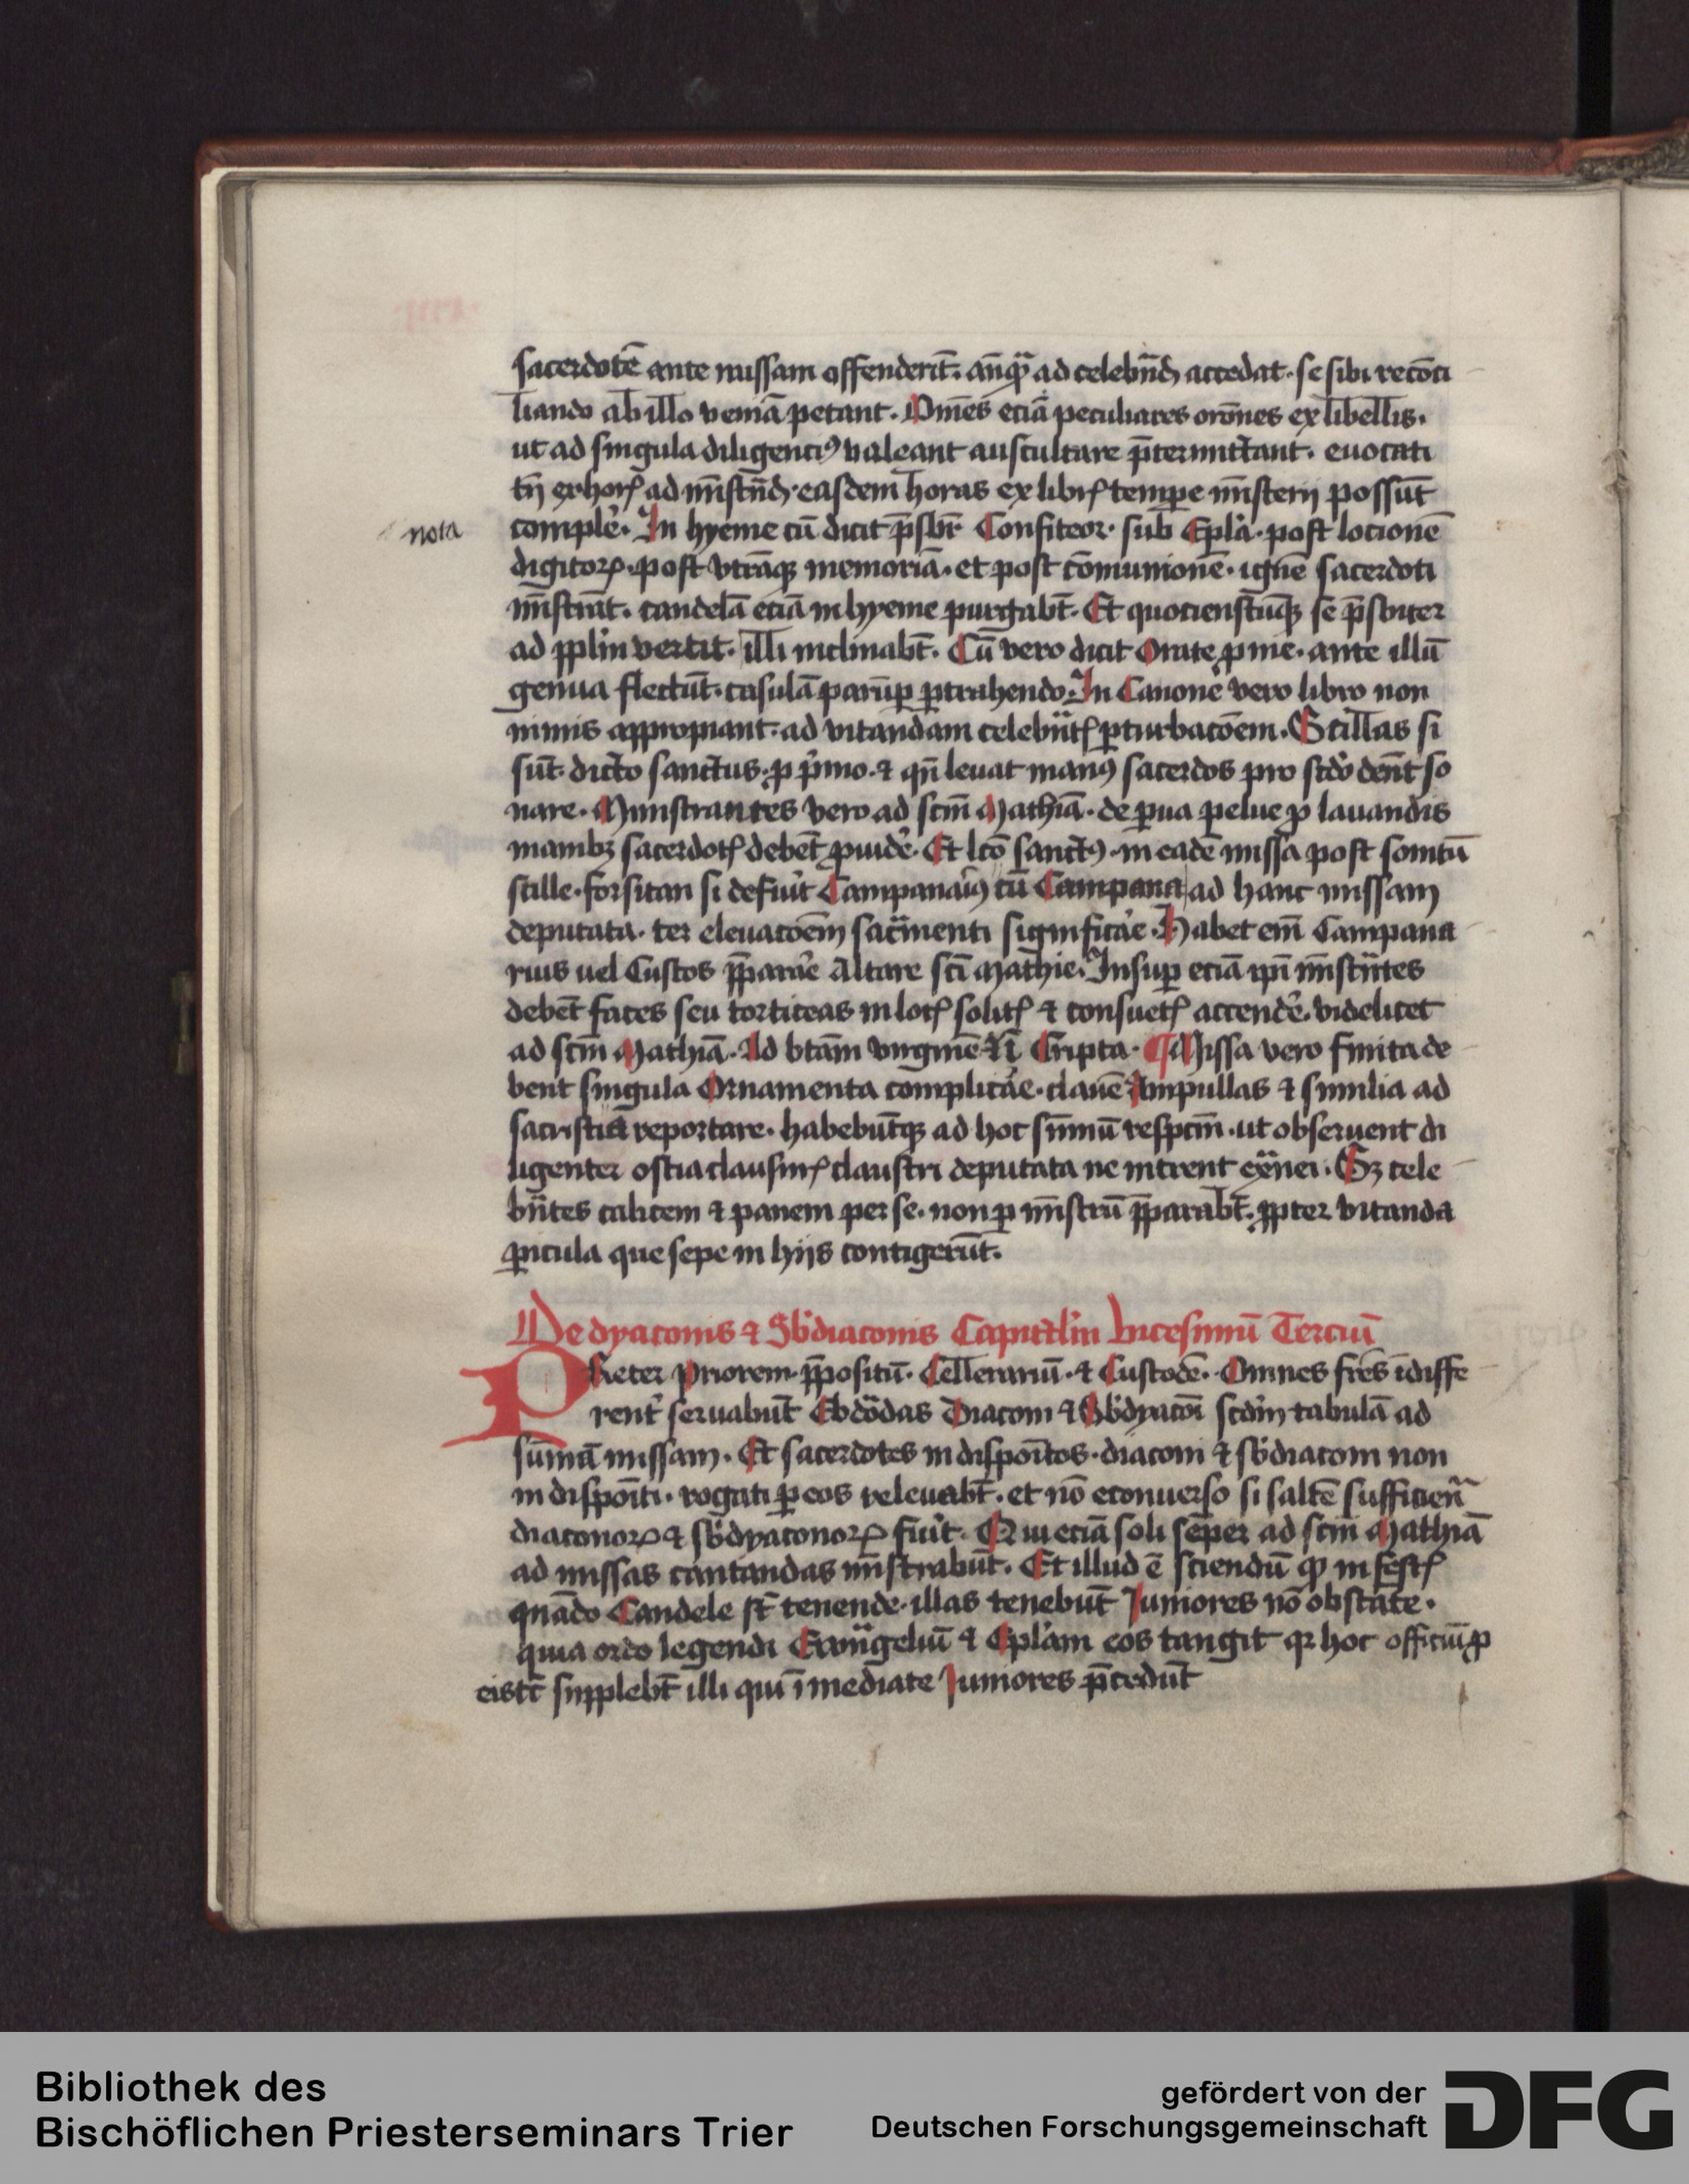 sacerdotē ante missam offenderīt. an̄qͣ ad celebn̄d accedat. se sibi recōci
liando ab illo veniā petant. Om̄es eciā peculiares orōnes ex libellis.
ut ad singula diligenciꝰ valeant auscultare p̄termittant. euocati
tn̄ ex horꝭ ad mīstn̄d. easdem horas ex librꝭ tempe mīsterij possūt
nota
comple᷑. In hyeme cū dicit p̄sbr̄ Confiteor. sub Epl̄a. post locionē
digitoꝝ. post vtrāqꝫ memoriā. et post cōmunionē. ignē sacerdoti
mīstrāt. candelā eciā in hyeme purgabt̄. Et quocienscūqꝫ se p̄sbiter
ad ppl̄m vertit. illi inclinabt̄. Cū vero dicit Orate ꝓ me. ante illū
genua flectūt. casulā parūꝑ ꝑtrahendo. In Canone vero libro non
nimis appropiant. ad vitandam celebn̄tꝭ ꝑturbacōem. Scillas si
sūt. dicto sanctus. ꝓ p̓mo. ⁊ qn̄ leuat manꝰ sacerdos pro scd̓o dent so
nare. Ministrantes vero ad scm̄ Mathiā. de ꝑua pelue ꝓ lauandis
manibꝫ sacerdotꝭ debēt ꝓuide᷑. Et lcō sanctꝰ. in eadē missa post sonitū
scille. forsitan si defuit Campanaꝰ cū Campana ad hanc missam
deputata. ter eleuacōem sacͣmenti significa᷑e. Habet em̄ Campana
rius uel Custos p̄para᷑e Altare sci Mathie. Insuꝑ eciā ip̄i mīstrn̄tes
debēt faces seu torticeas in locꝭ solitꝭ ⁊ consuetꝭ accende᷑. videlicet
ad scm̄ Mathiā. Ad btām virginē ⁊ ī Cripta. ¶ Missa vero finita de
bent singula Ornamenta complica᷑e. clauē Ampullas ⁊ similia ad
sacristiā reportare. habebūtqꝫ ad hoc sūmū respcm̄. ut obseruent di
ligenter ostia clausurꝭ claustri deputata ne intrent exͣnei. Sꝫ cele
brn̄tes calicem ⁊ panem per se. non ꝑ mīstrū p̄parabt̄. ꝓpter vitanda
ꝑicula que sepe in hijs contigerūt.
De dyaconis ⁊ Sb̓diaconis Capitl̓m Vicesimū Terciū
PReter Priorem. p̄positū. Cellerariū. ⁊ Custodē. Omnes frēs īdiffe
rent᷑ seruabūt Ebdōdas Diaconi ⁊ Sb̓dyacoī scdm̓ tabulā ad
sūmā missam. Et sacerdotes in dispoītos. diaconi ⁊ sb̓diaconi non
in dispoīti. rogati ꝑ eos releuabt̄. et nō econuerso si saltē sufficien̄
diaconoꝝ ⁊ sb̓dyaconoꝝ fuit. Qui eciā soli semper ad scm̄ Mathiā
ad missas cantandas mīstrabūt. Et illud ē sciendū qꝫ in festꝭ
quādo Candele st̄ tenende. illas tenebūt Iuniores nō obstāte.
quia ordo legendi Evangeliū ⁊ Epl̓am eos tangit qꝛ hoc officiū ꝓ
eis tc̄ supplebt̄ illi qui īmediate Iuniores p̄cedūt
Bibliothek des
Bischöflichen Priesterseminars Trier
gefördert von der
Deutschen Forschungsgemeinschaft
DFG